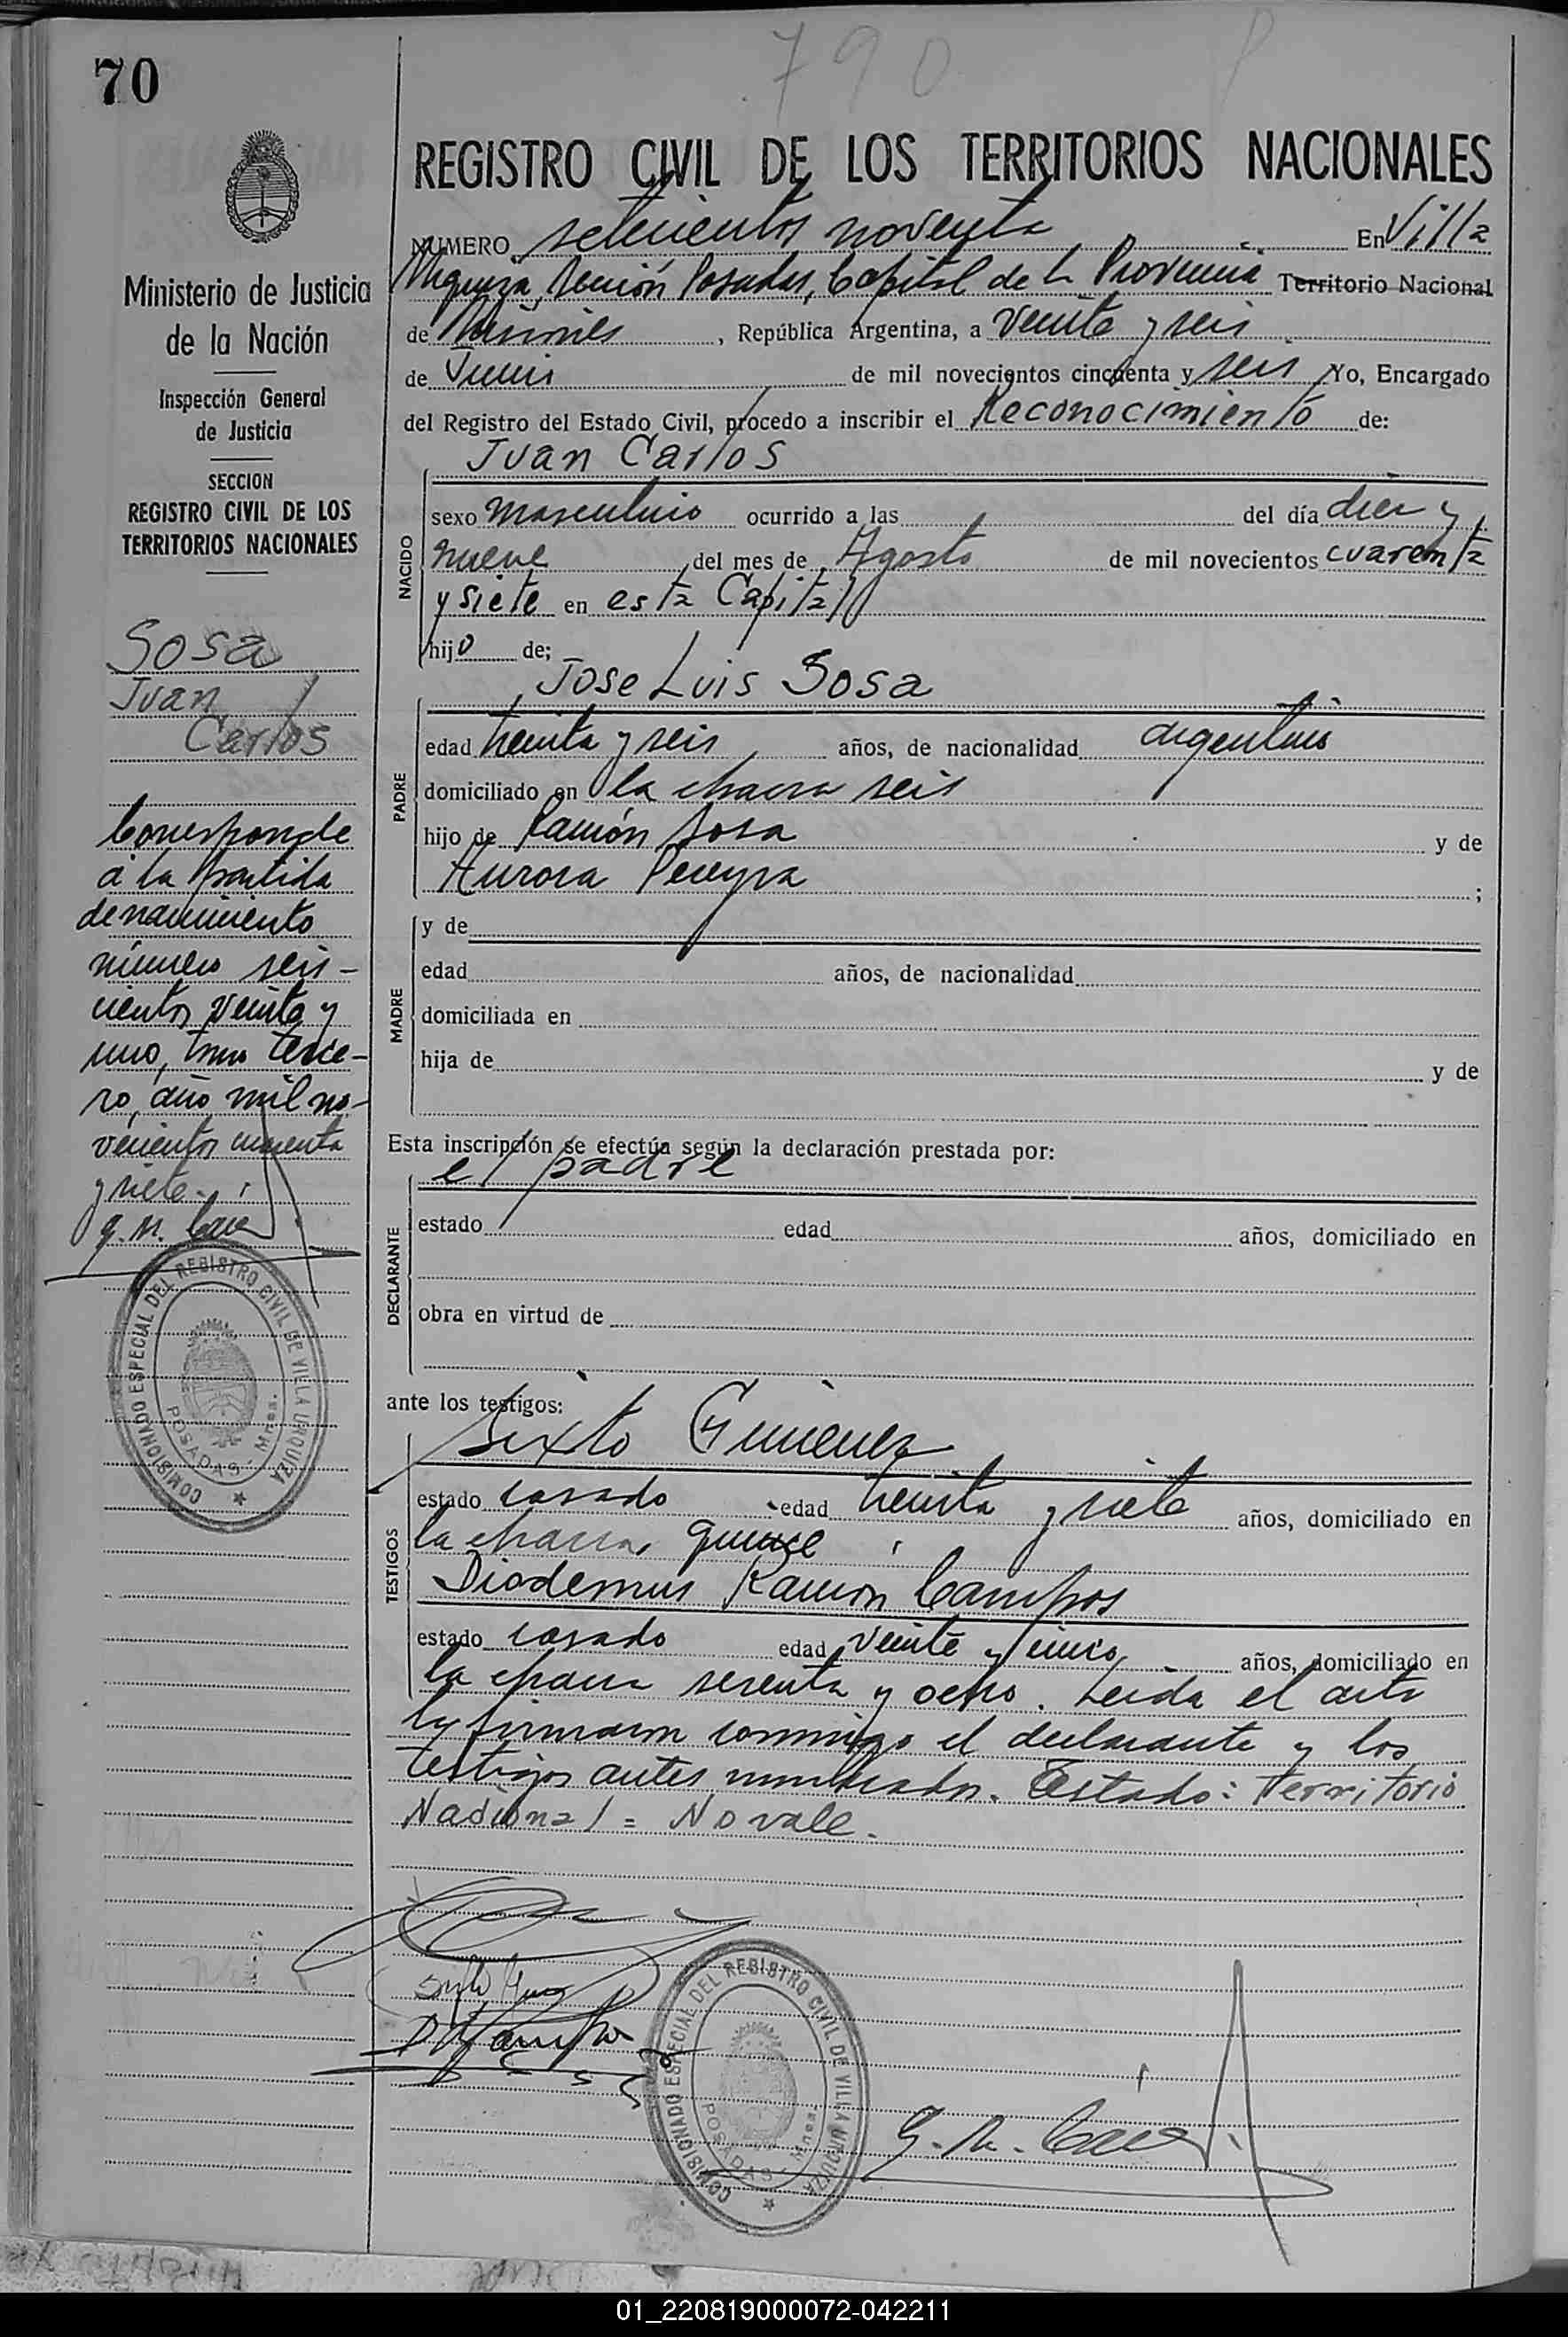 70
790
REGISTRO CIVIL DE LOS TERRITORIOS NACIONALES
NUMERO setecientos noventa En Villa
Urquiza, Sección Posadas, Capital de la Provincia Territorio Nacional
de Misiones, República Argentina, a veinte y seis
de Junio de mil novecientos cincuenta y seis Yo, Encargado
del Registro del Estado Civil, procedo a inscribir el Reconocimiento de:
Juan Carlos
NACIDO
sexo masculino ocurrido a las del día diez y
nueve del mes de Agosto de mil novecientos cuarenta
y siete en esta Capital
hijo de;
Jose Luis Sosa
PADRE
edad treinta y seis años, de nacionalidad argentino
domiciliado en la chacra seis
hijo de Ramón Sosa y de
Aurora Pereyra ;
MADRE
y de
edad años, de nacionalidad
domiciliada en
hija de y de
Esta inscripción se efectúa según la declaración prestada por:
el padre
DECLARANTE
estado edad años, domiciliado en
obra en virtud de
ante los testigos:
Sixto Gimenez
TESTIGOS
estado casado edad treinta y siete años, domiciliado en
la chacra quince
Diodemus Ramon Campos
estado casado edad veinte y cinco años, domiciliado en
la chacra sesenta y ocho. Leida el acta
la firmaron conmigo el declarante y los
testigos antes nombrados. Testado: Territorio
Nacional = No vale.
Ministerio de Justicia
de la Nación
Inspección General
de Justicia
SECCION
REGISTRO CIVIL DE LOS
TERRITORIOS NACIONALES
Sosa
Juan
Carlos
Corresponde
a la partida
de nacimiento
número seis-
cientos veinte y
uno, tomo terce-
ro, año mil no-
vecientos cuarenta
y siete.
COMISIONADO ESPECIAL DEL REGISTRO CIVIL DE VILLA URQUIZA
POSADAS - Mnes.
COMISIONADO ESPECIAL DEL REGISTRO CIVIL DE VILLA URQUIZA
POSADAS - Mnes.
01_220819000072-042211